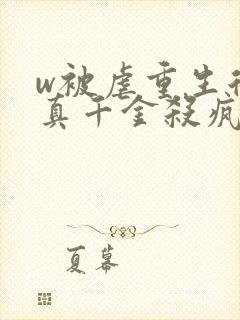 w被虐重生
真千金殺瘋
夏幕